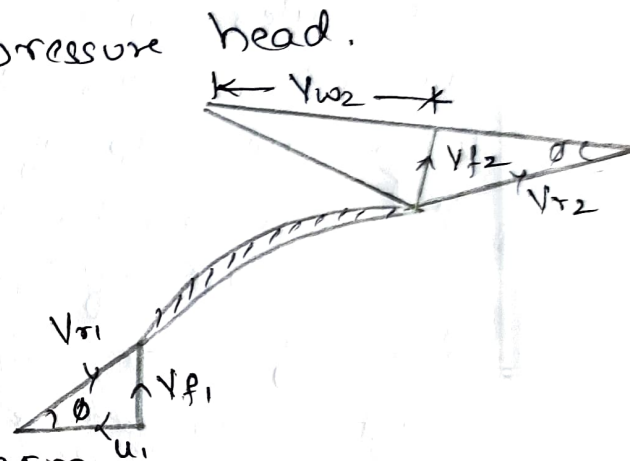 pressure head.
Vw2
Vf2
ø
Vr2
Vr1
Vf1
ø
u1